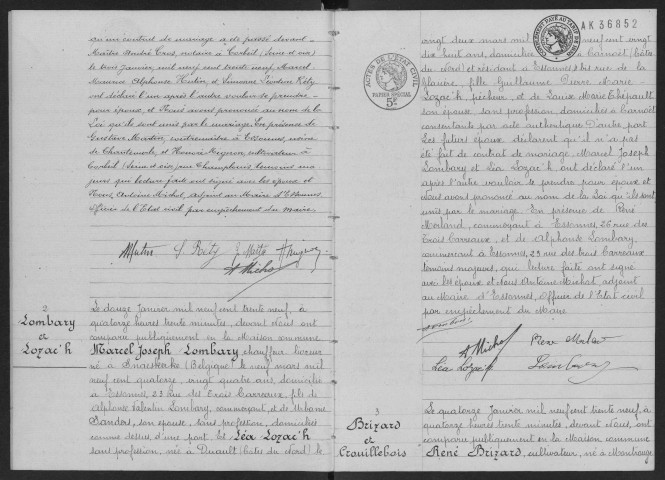 ou un contrat de mariage a été passé devant
Maître André Cros, notaire à Corbeil (Seine et Oise)
le trois Janvier, mil neuf cent trente neuf. Marcel
Maurice Alphonse Hutin, et Simone Rétz
ont déclaré l'un après l'autre vouloir se prendre
pour époux, et Nous avons prononcé au nom de la
Loi qu'ils sont unis par le mariage. En présence de
Gustave Martin, contremaître à Essonnes,
de Chantemerle, et Henri Mignon,
Corbeil (Seine et Oise) rue Champlouis témoins ma
jeurs qui lecture faite ont signé avec les époux et
Nous, Antoine Michot, adjoint au Maire d'Essonnes,
officier de l'Etat civil par empêchement du Maire
Hutin S. Rétz Mattei Mignon
A Michot
2
Lombary
et
Lozac'h
Le douze Janvier mil neuf cent trente neuf, à
quatorze heures trente minutes, devant Nous ont
comparu publiquement en la Maison commune
Marcel Joseph Lombary chauffeur livreur
né à (Belgique) le neuf mars mil
neuf cent quatorze, vingt quatre ans, domicilié
à Essonnes, 23 Rue des Trois Carreaux, fils de
Alphonse Valentin Lombary, commerçant, et de
Bandors, son épouse, sans profession, domiciliés
comme dessus, d'une part, Et Léa Lozac'h
sans profession, née à Duault (Côtes du Nord) le
AK 36852
ACTES DE L'ETAT CIVIL
PAPIER SPECIAL
5F
vingt deux mars mil neuf cent vingt
dix huit ans, domiciliée à Carnoët (Côtes
du Nord) et résidant à Essonnes rue de la
fille Guillaume Pierre Marie
Lozac'h, pêcheur, et de Louise Marie Thépault
son épouse, sans profession, domiciliés à Carnoët
consentants par acte authentique D'autre part
Les futurs époux déclarent qu'il n'a pas
été fait de contrat de mariage. Marcel Joseph
Lombary et Léa Lozac'h ont déclaré l'un
après l'autre vouloir se prendre pour époux et
Nous avons prononcé au nom de la Loi qu'ils sont
unis par le mariage. En présence de René
Morland, commerçant à Essonnes, 26 rue des
Trois Carreaux, et de Alphonse Lombary,
commerçant à Essonnes, 23 rue des trois Carreaux
témoins majeurs, que lecture faite ont signé
avec les époux et Nous Antoine Michot, adjoint
au Maire d'Essonnes, Officier de l'Etat civil
par empêchement du Maire
A Michot René
Léa Lozac'h
3
Brizard
et
Crouillebois
Le quatorze Janvier mil neuf cent trente neuf, à
quatorze heures trente minutes, devant Nous, ont
comparu publiquement en la Maison commune
René Brizard, cultivateur, né à Montrouge